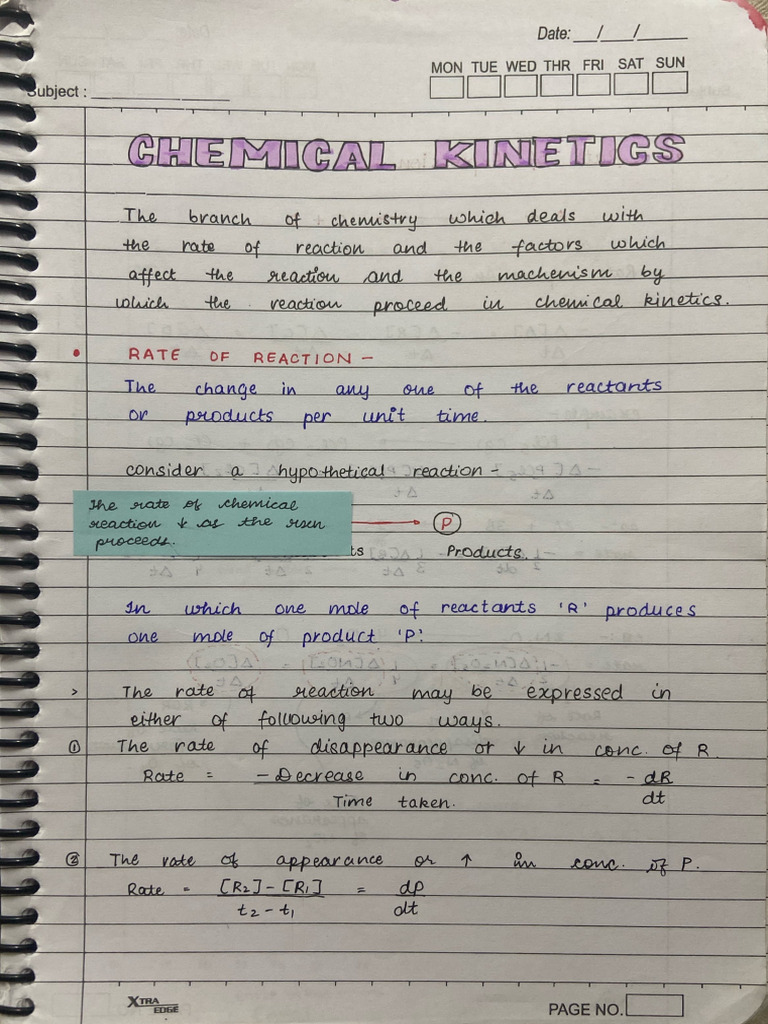 Date: __/__/____
MON TUE WED THR FRI SAT SUN
Subject : ________
CHEMICAL KINETICS
The branch of chemistry which deals with
the rate of reaction and the factors which
affect the reaction and the machenism by
which the reaction proceed in chemical kinetics.
• RATE OF REACTION –
The change in any one of the reactants
or products per unit time.
consider a hypothetical reaction -
The rate of chemical
reaction ↓ as the rxn
proceeds.
→ P
ts Products.
In which one mole of reactants 'R' produces
one mole of product 'P'.
> The rate of reaction may be expressed in
either of following two ways.
① The rate of disappearance or ↓ in conc. of R.
Rate = - Decrease in conc. of R = - dR
Time taken. dt
② The rate of appearance or ↑ in conc. of P.
Rate = [R2] - [R1] = dp
t2 - t1 dt
XTRA
EDGE
PAGE NO.